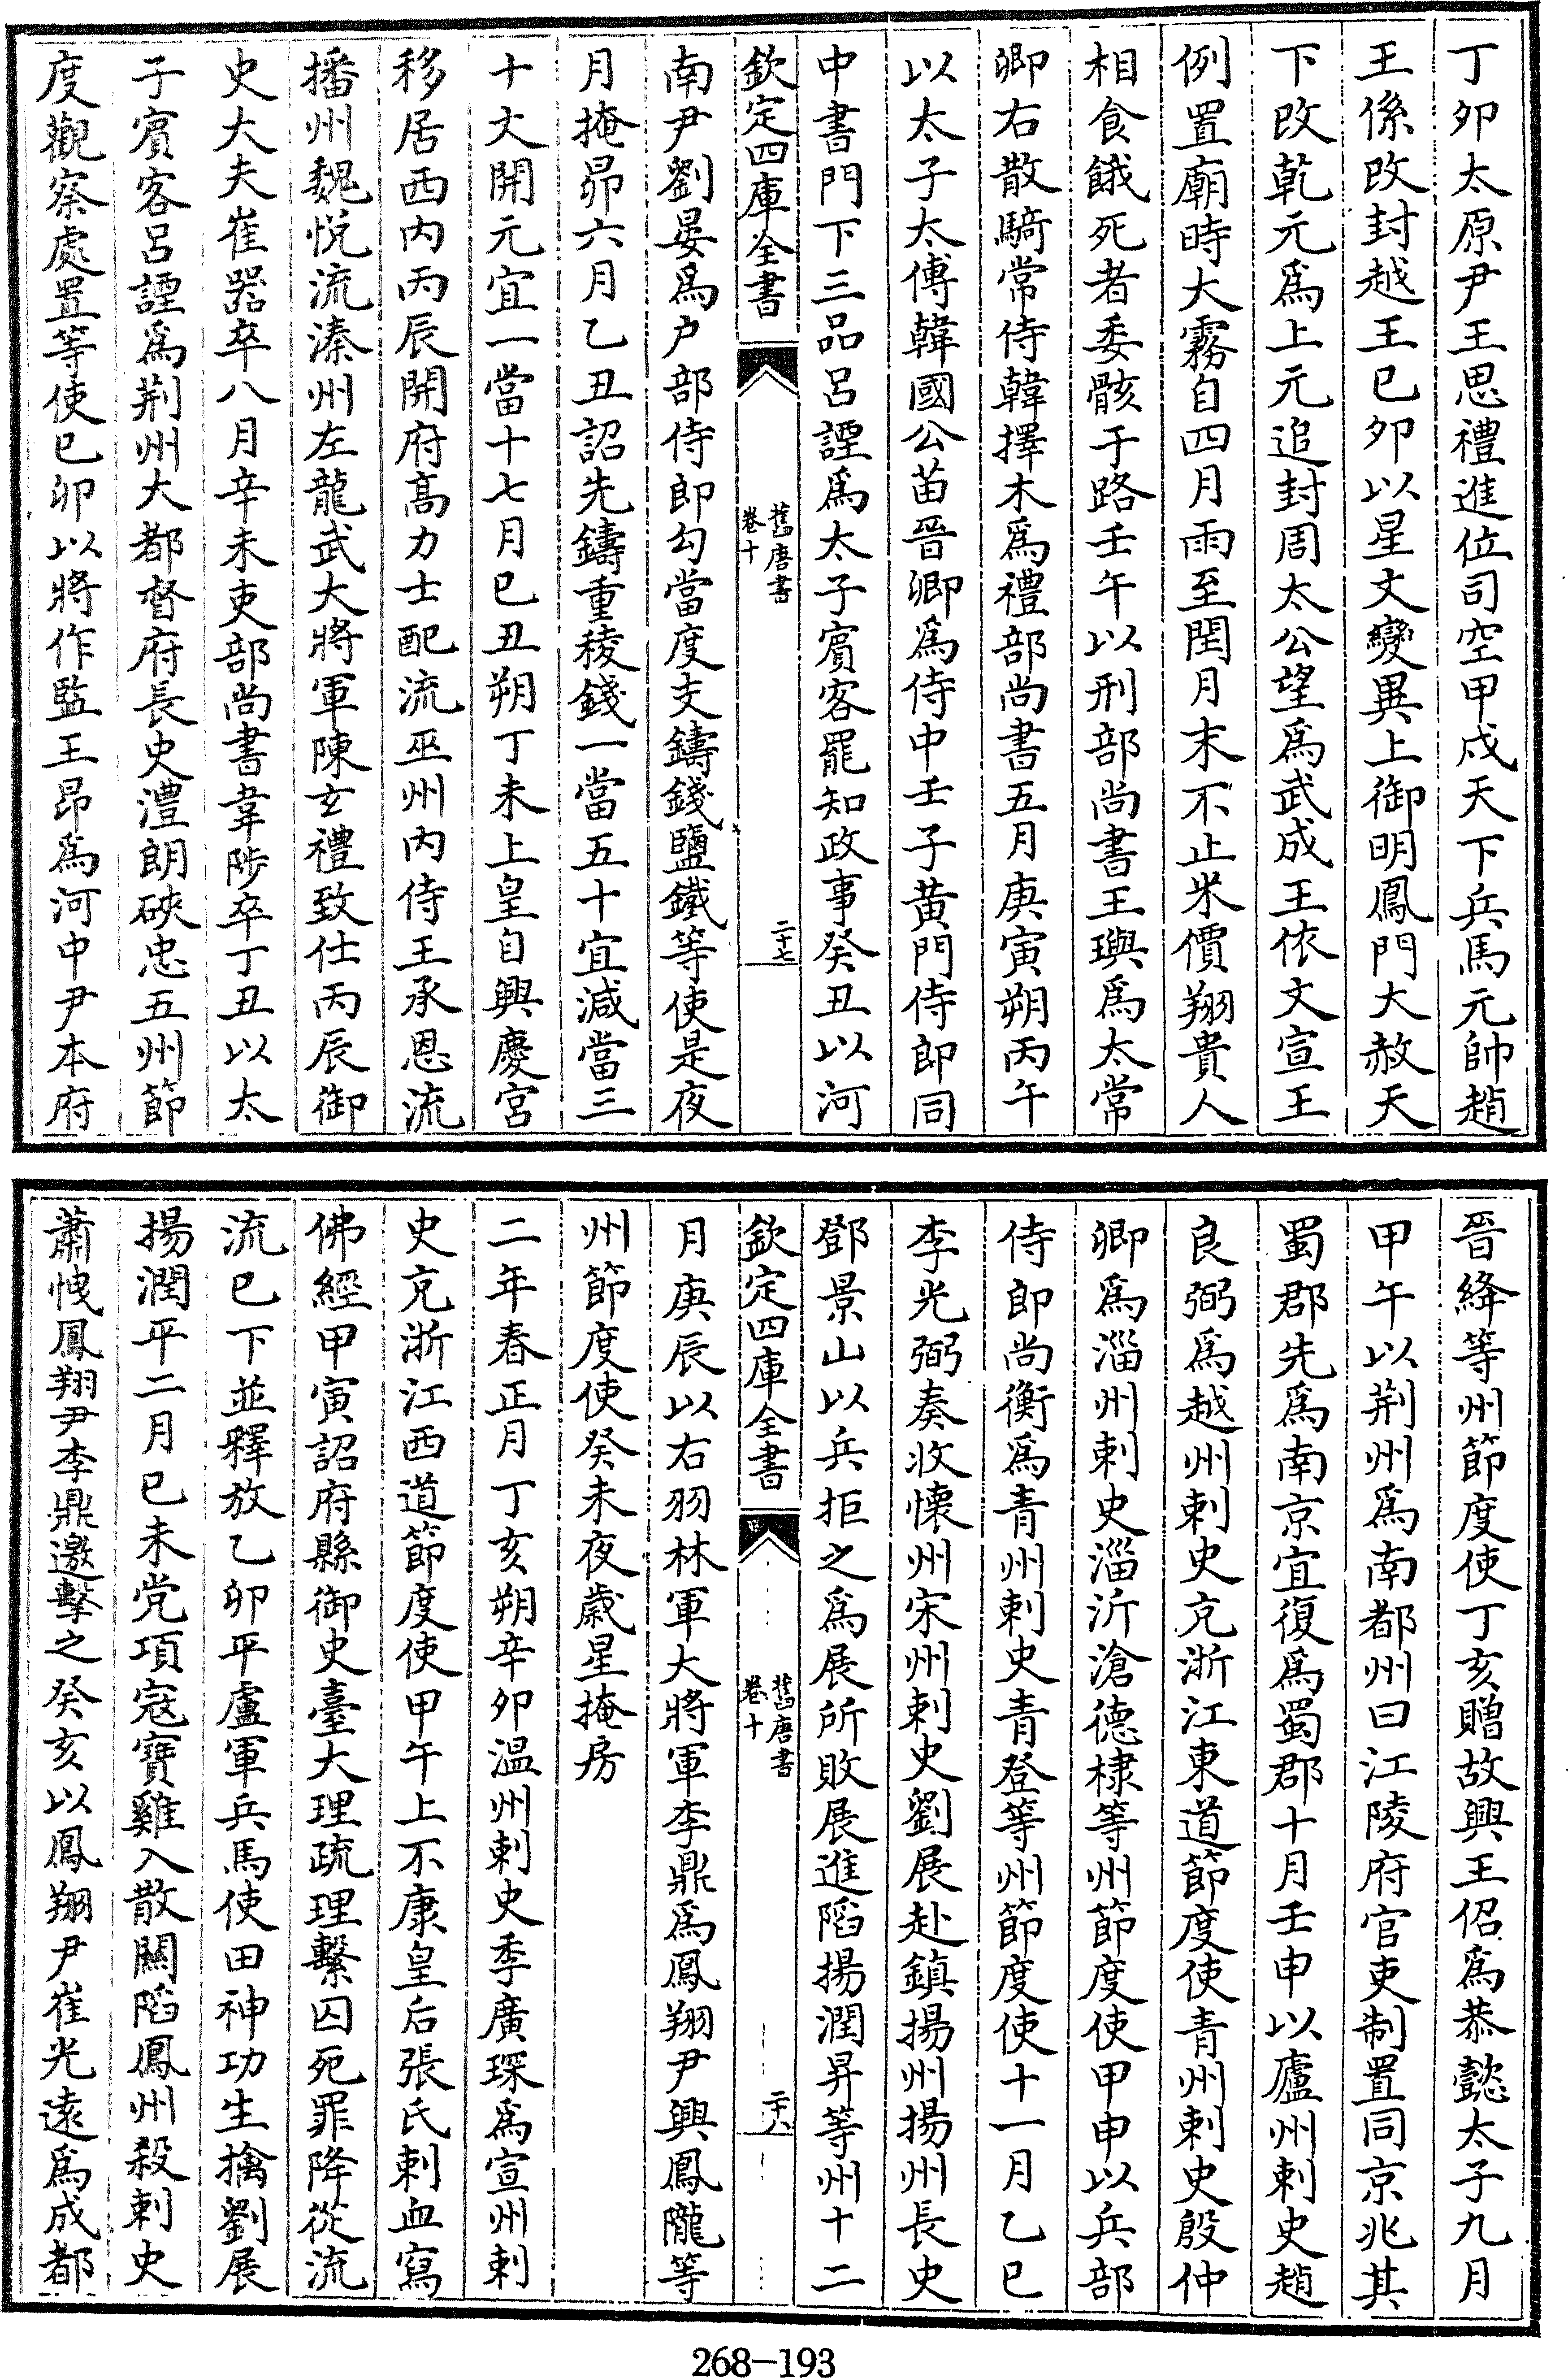 丁夘太原尹王思禮進位司空甲戍天下兵馬元帥趙
王係改封越王已夘以星文變異上御明鳳門大赦天
下改乾元爲上元追封周太公望爲武成王依文宣王
例置廟時大霧自四月雨至閏月末不止米價翔貴人
相食餓死者委骸于路壬午以刑部尚書王璵爲太常
卿右散騎常侍韓擇木爲禮部尚書五月庚寅朔丙午
以太子太傅韓國公苗晉卿爲侍中壬子黄門侍郎同
中書門下三品吕諲爲太子賓客罷知政事癸丑以河
欽定四庫全書
舊唐書
卷十
二十七
南尹劉晏爲户部侍郎勾當度支鑄錢鹽鐵等使是夜
月掩昴六月乙丑詔先鑄重稜錢一當五十宜減當三
十文開元宜一當十七月已丑朔丁未上皇自興慶宮
移居西内丙辰開府高力士配流巫州内侍王承恩流
播州魏悦流溱州左龍武大將軍陳玄禮致仕丙辰御
史大夫崔器卒八月辛未吏部尚書韋陟卒丁丑以太
子賓客吕諲爲荆州大都督府長史澧朗硤忠五州節
度觀察處置等使已卯以將作監王昂爲河中尹本府
晉絳等州節度使丁亥贈故興王佋爲恭懿太子九月
甲午以荆州爲南都州曰江陵府官吏制置同京兆其
蜀郡先爲南京宜復爲蜀郡十月壬申以廬州刺史趙
良弼爲越州刺史充浙江東道節度使青州刺史殷仲
卿爲淄州刺史淄沂滄德棣等州節度使甲申以兵部
侍郎尚衡爲青州刺史青登等州節度使十一月乙巳
李光弼奏收懷州宋州刺史劉展赴鎮揚州揚州長史
鄧景山以兵拒之爲展所敗展進陷揚潤昇等州十二
欽定四庫全書
舊唐書
卷十
二十八
月庚辰以右羽林軍大將軍李鼎爲鳳翔尹興鳳隴等
州節度使癸未夜歲星掩房
二年春正月丁亥朔辛卯温州刺史季廣琛爲宣州刺
史充浙江西道節度使甲午上不康皇后張氏刺血寫
佛經甲寅詔府縣御史臺大理疏理繫囚死罪降從流
流已下並釋放乙卯平盧軍兵馬使田神功生擒劉展
揚潤平二月已未党項寇寶雞入散關陷鳳州殺刺史
蕭㤞鳳翔尹李鼎邀擊之癸亥以鳳翔尹崔光遠爲成都
268-193